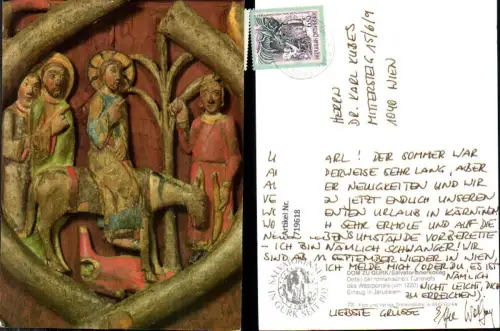 HERRN
DR. KARL KUBES
MITTERSTEIG 15/6/9
1040 WIEN
ARL! DER SOMMER WAR
DERWEISE SEHR LANG, ABER
ER NEUIGKEITEN UND WIR
JETZT ENDLICH UNSEREN
ENTEN URLAUB IN KÄRNTEN
SEHR ERHOLE UND AUF DIE
BENSUMSTÄNDE VORBEREITE
- ICH BIN NÄMLICH SCHWANGER! WIR
SIND AB SEPTEMBER WIEDER IN WIEN,
ICH MELDE MICH (ODER DU, ES IST
NÄMLICH
NICHT LEICHT, DICH
ZU ERREICHEN).
LIEBSTE GRÜSSE
Artikel Nr.
719618
DOM ZU GURK
Detail der romanischen Türreliefs
des Westportals (um 1220)
Einzug in Jerusalem
REPUBLIK ÖSTERREICH